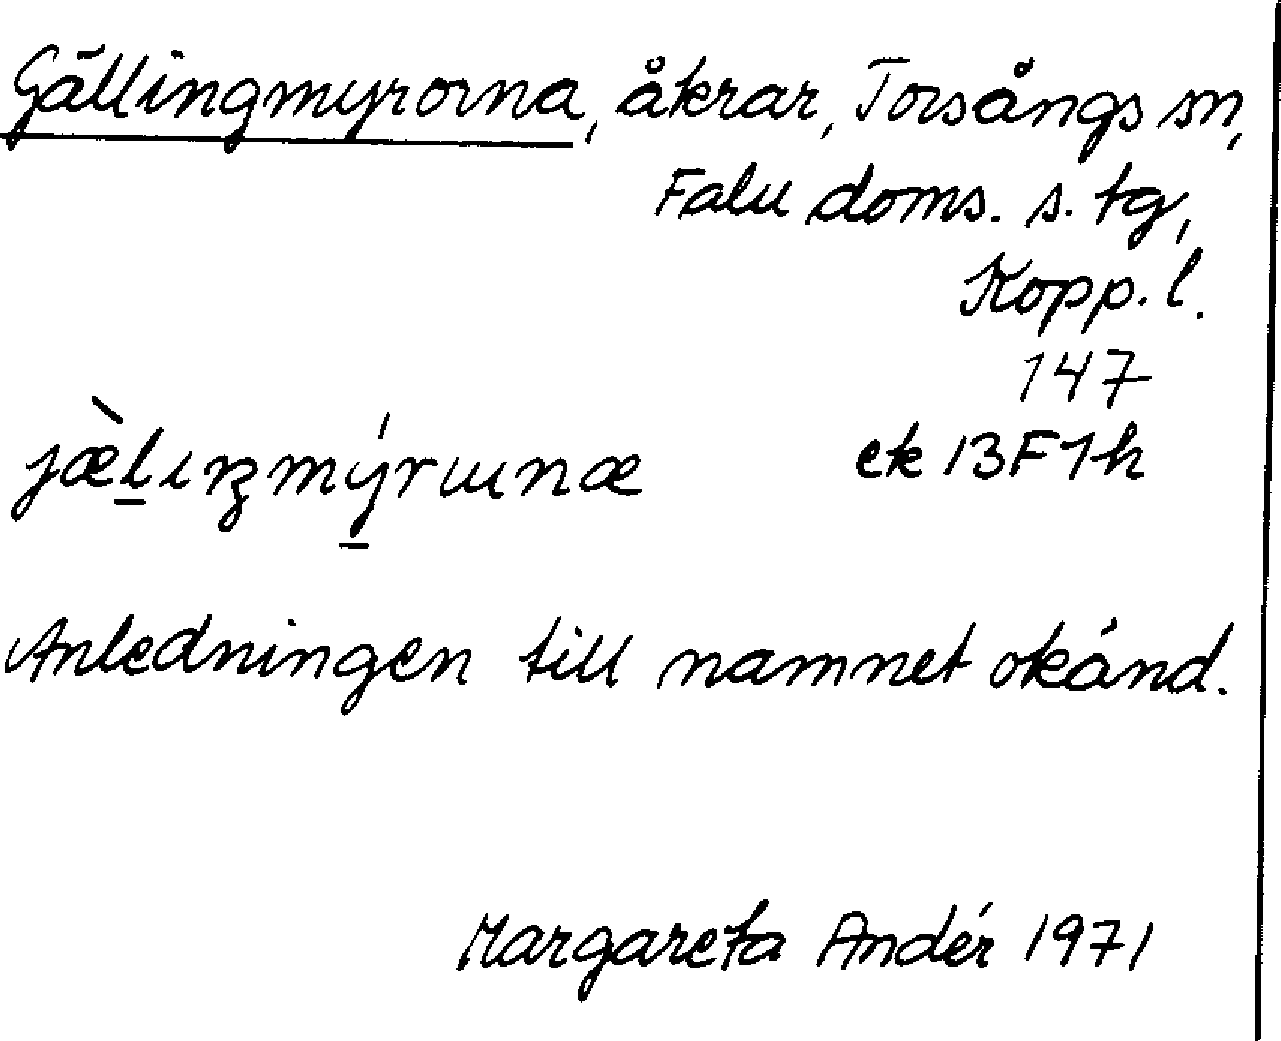 Gällingmyrorna, åkrar, Torsångs sn,
Falu doms. s. tg,
Kopp. l.
147
jæ̀lıŋmýrɯnæ ek 13F1h
Anledningen till namnet okänd.
Margareta Andér 1971